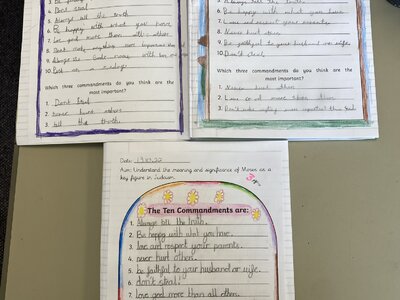 Don't steal
Always tell the truth
Be happy with what you have
Love god more than all others
Don't make anything more important than god
Always use Gods name with
Rest on a sunday
Which three commandments do you think are the
most important?
1. Don't steal
2. never hurt others
3. tell the truth
Always tell the truth
Be happy with what you have
Love and respect your parents
Never hurt others
Be faithful to your husband or wife
10. Don't steal
Which three commandments do you think are the
most important?
1. Never hurt others
2. Love god more than others
3. Don't make anything more important than God
Date: 13.10.22
Aim: Understand the meaning and significance of Moses as a
key figure in Judaism.
The Ten Commandments are:
1. Always tell the truth.
2. Be happy with what you have.
3. love and respect your parents.
4. never hurt others.
5. be faithful to your husband or wife.
6. don't steal!
7. love god more than all others.